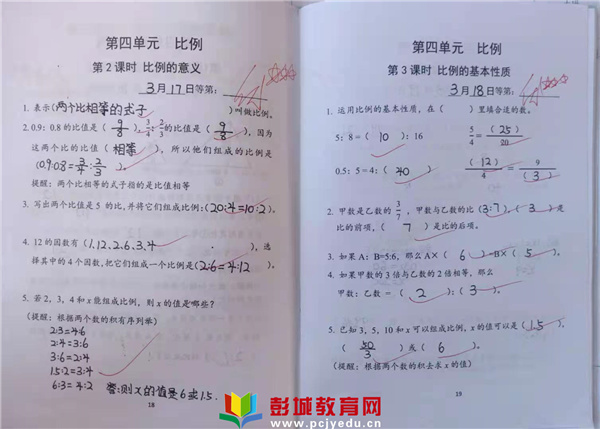 第四单元 比例
第2课时 比例的意义
3月17日等第:
1. 表示(两个比相等的式子)叫做比例。
2. 0.9: 0.8的比值是(9/8), 3/4:2/3的比值是(9/8), 因为
这两个比的比值(相等), 所以他们组成的比例是
(0.9:0.8=3/4:2/3)
提醒: 两个比相等的式子指的是比值相等
3. 写出两个比值是5 的比,并将它们组成比例:(20:4=10:2)。
4. 12的因数有(1.12.2.6.3.4), 选
择其中的4个因数,把它们组成一个比例是(2:6=4:12)。
5. 若2, 3, 4和x能组成比例, 则x的值是哪些?
(提醒: 根据两个数的积有序列举)
2:3=4:6
2:4=3:6
3:6=2:4
1.5:2=3:4
6:3=4:2 答:则x的值是6或1.5.
18
第四单元 比例
第3课时 比例的基本性质
3月18日等第:
1. 运用比例的基本性质, 在( )里填合适的数。
5: 8=(10): 16 5/4=(25)/20
0.5: 5=4:(40) (12)/4=9/(3)
2. 甲数是乙数的3/7, 甲数与乙数的比(3:7),(3)是
比的前项,(7)是比的后项。
3. 如果A: B=5:6, 那么A×(6)=B×(5)。
4. 如果甲数的3倍与乙数的2倍相等, 那么
甲数: 乙数=(2):(3)。
5. 已知3, 5, 10和x可以组成比例, x的值可以是(1.5)、
(50/3)或(6)。
(提醒: 根据两个数的积去求x的值)
19
彭城教育网
www.pcjyedu.cn